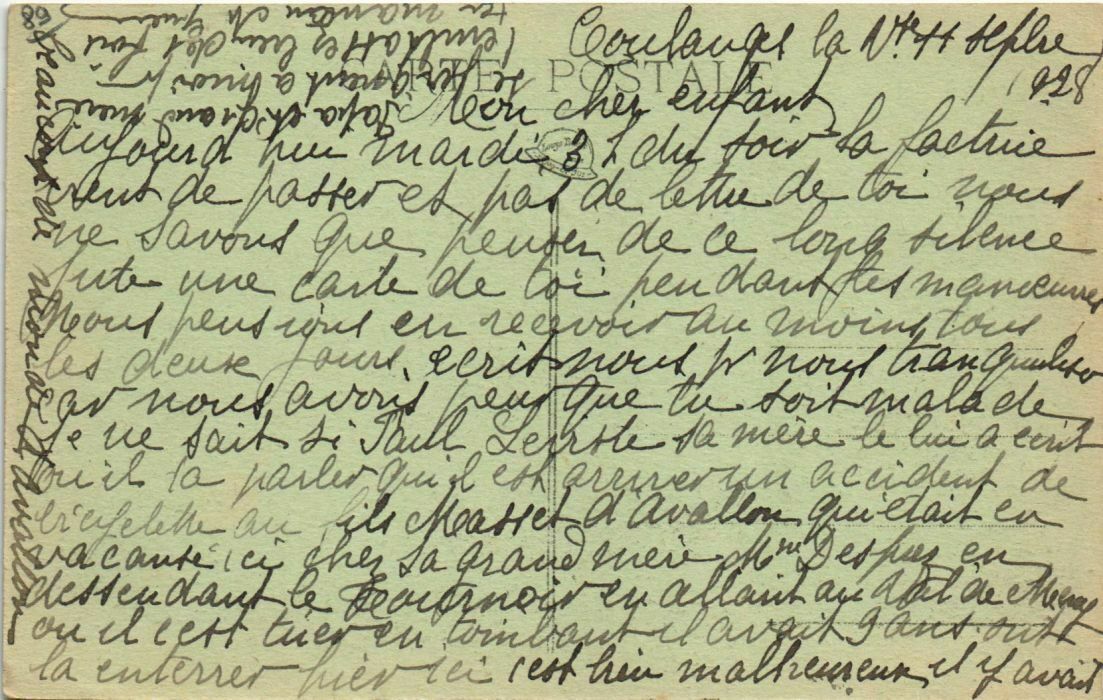 Coulanges la Vse 11 septbre
1928
CARTE POSTALE
Mon cher enfant
Aujourd hui mardi 3 h du soir la factrice
vient de passer et pas de lettre de toi nous
ne savons que penser de ce long silence
une carte de toi pendant tes manœuvres
Nous pensions en recevoir au moins tous
les deux jours. ecrit nous pr nous tranquiliser
car nous avons peur que tu soit malade
je ne sait si Paul sa mère le lui a ecrit
ou il la parler qu'il est arriver un accident de
bicyclette au fils Masset d'Avallon qui etait en
vacanse ici chez sa grand mère Mme en
dessendant le en allant au de
ou il cest tuer en tombant il avait 9 ans ont
la enterrer hier ici c'est bien malheureux il y avait
beaucoup de monde d'Avallon
Papa et Grand mère
se joignent a moi pr
t'embrasser bien des fois
ta maman